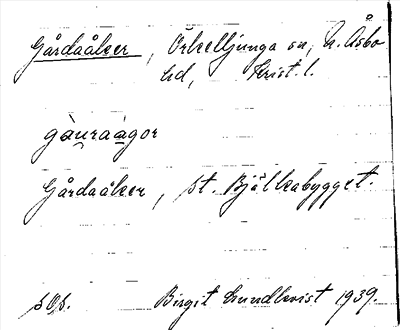 Gårdaåker, Örkelljunga sn, N. Åsbo
hd, Krist. l.
gàu̯raágor
Gårdaåker, st. Bjälkabygget.
sOs. Birgit Lundkvist 1939.